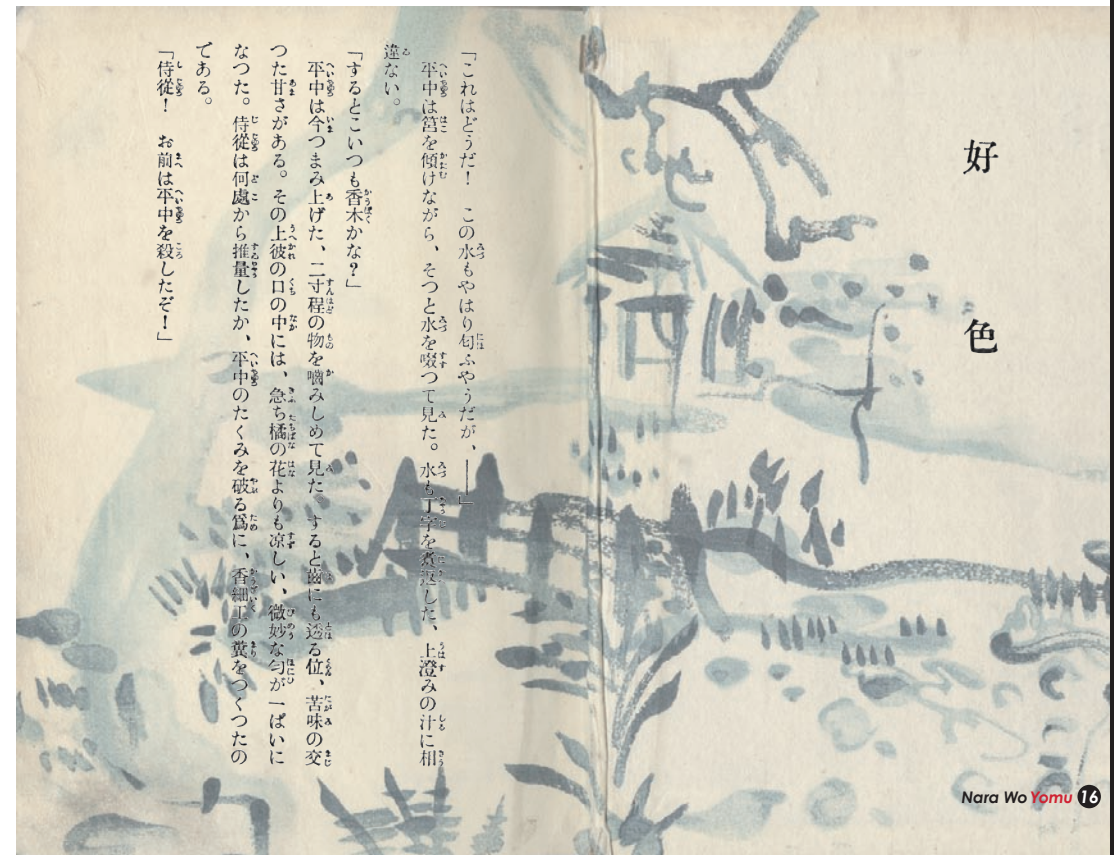 好色
「これはどうだ！　この水もやはり匂ふやうだが、――」
平中は筥を傾けながら、そつと水を啜つて見た。水も丁字を煮返した、上澄みの汁に相
違ない。
「するとこいつも香木かな？」
平中は今つまみ上げた、二寸程の物を噛みしめて見た　すると齒にも透る位、苦味の交
つた甘さがある。その上彼の口の中には、急ち橘の花よりも凉しい、微妙な匂が一ぱいに
なつた。侍從は何處から推量したか、平中のたくみを破る爲に、香細工の糞をつくつたの
である。
「侍從！　お前は平中を殺したぞ！」
Nara Wo Yomu 16